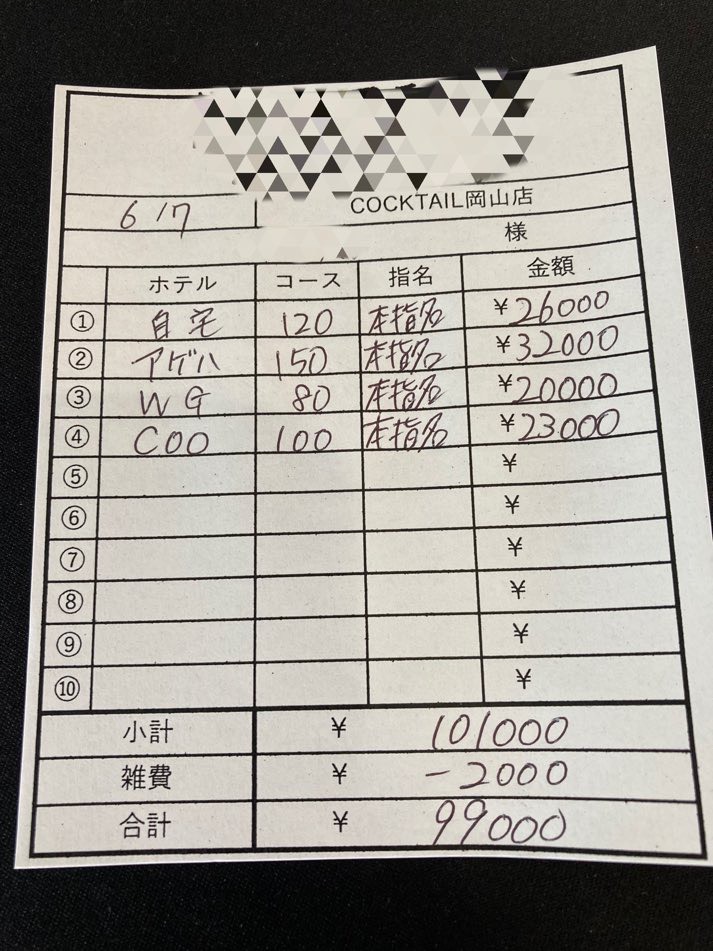 COCKTAIL岡山店
6/17
様
ホテル コース 指名 金額
① 自宅 120 本指名 ¥26000
② アゲハ 150 本指名 ¥32000
③ WG 80 本指名 ¥20000
④ COO 100 本指名 ¥23000
⑤ ¥
⑥ ¥
⑦ ¥
⑧ ¥
⑨ ¥
⑩ ¥
小計 ¥ 101000
雑費 ¥ -2000
合計 ¥ 99000